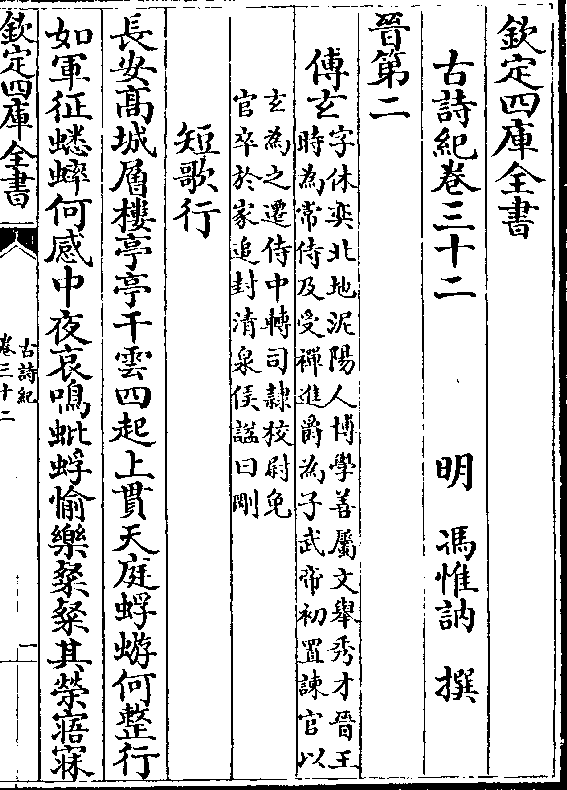 欽定四庫全書
古詩紀卷三十二
明 馮惟訥 撰
晉第二
傅玄
字休奕北地泥陽人博學善屬文舉秀才晉王
時為常侍及受禪進爵為子武帝初置諫官以
玄為之遷侍中轉司隷校尉免
官卒於家追封清泉侯諡曰剛
短歌行
長安髙城層樓亭亭干雲四起上貫天庭蜉蝣何整行
如軍征蟋蟀何感中夜哀鳴蚍蜉愉樂粲粲其榮寤寐
欽定四庫全書
古詩紀
卷三十二
一